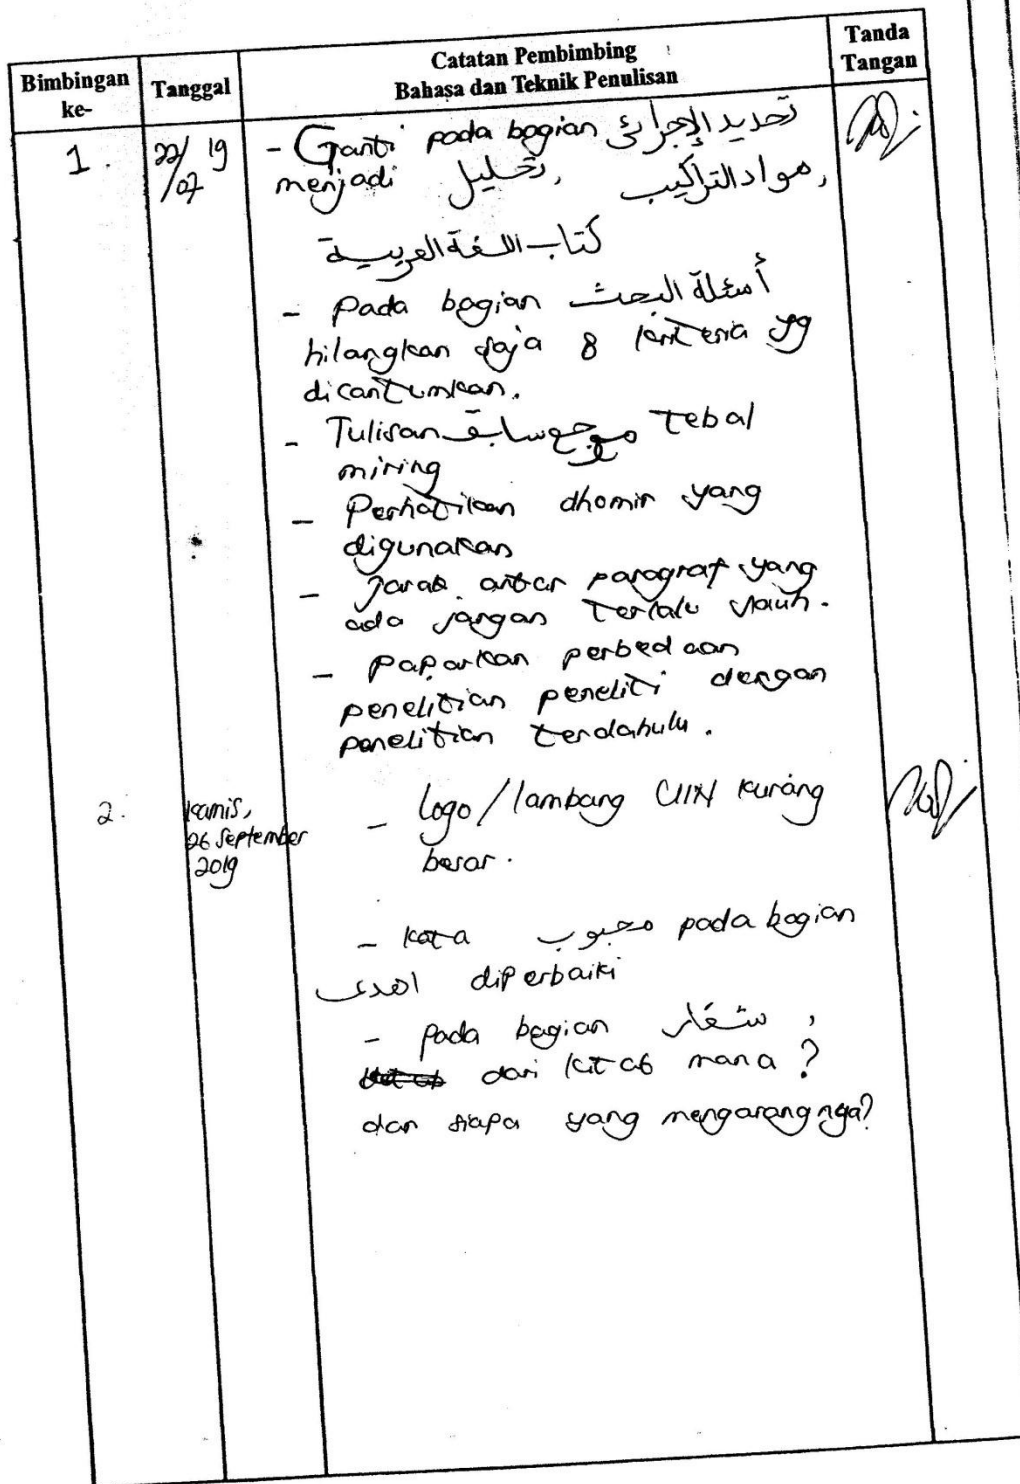 Bimbingan ke-
Tanggal
Catatan Pembimbing
Bahasa dan Teknik Penulisan
Tanda Tangan
1.
22/07 19
- Ganti pada bagian تحديد الإجرائي
menjadi تحليل, مواد التراكيب,
كتاب اللغة العربية
- Pada bagian أسئلة البحث
hilangkan saja 8 kriteria yg
dicantumkan.
- Tulisan مرجع سابق tebal
miring
- Perhatikan dhomir yang
digunakan
- Jarak antar paragraf yang
ada jangan terlalu jauh.
- Paparkan perbedaan
penelitian peneliti dengan
penelitian terdahulu.
2.
Kamis,
26 September
2019
- logo/lambang UIN kurang
besar.
- kata محبوب pada bagian
اهدى diperbaiki
- pada bagian شعار,
dari kitab mana?
dan siapa yang mengarangnya?